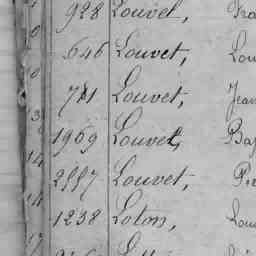 928 Louvel,
646 Louvet, Lou
741 Louvet, Jean
1969 Louvet, Bap
2557 Louvet, Pie
1238 Loton, Lou